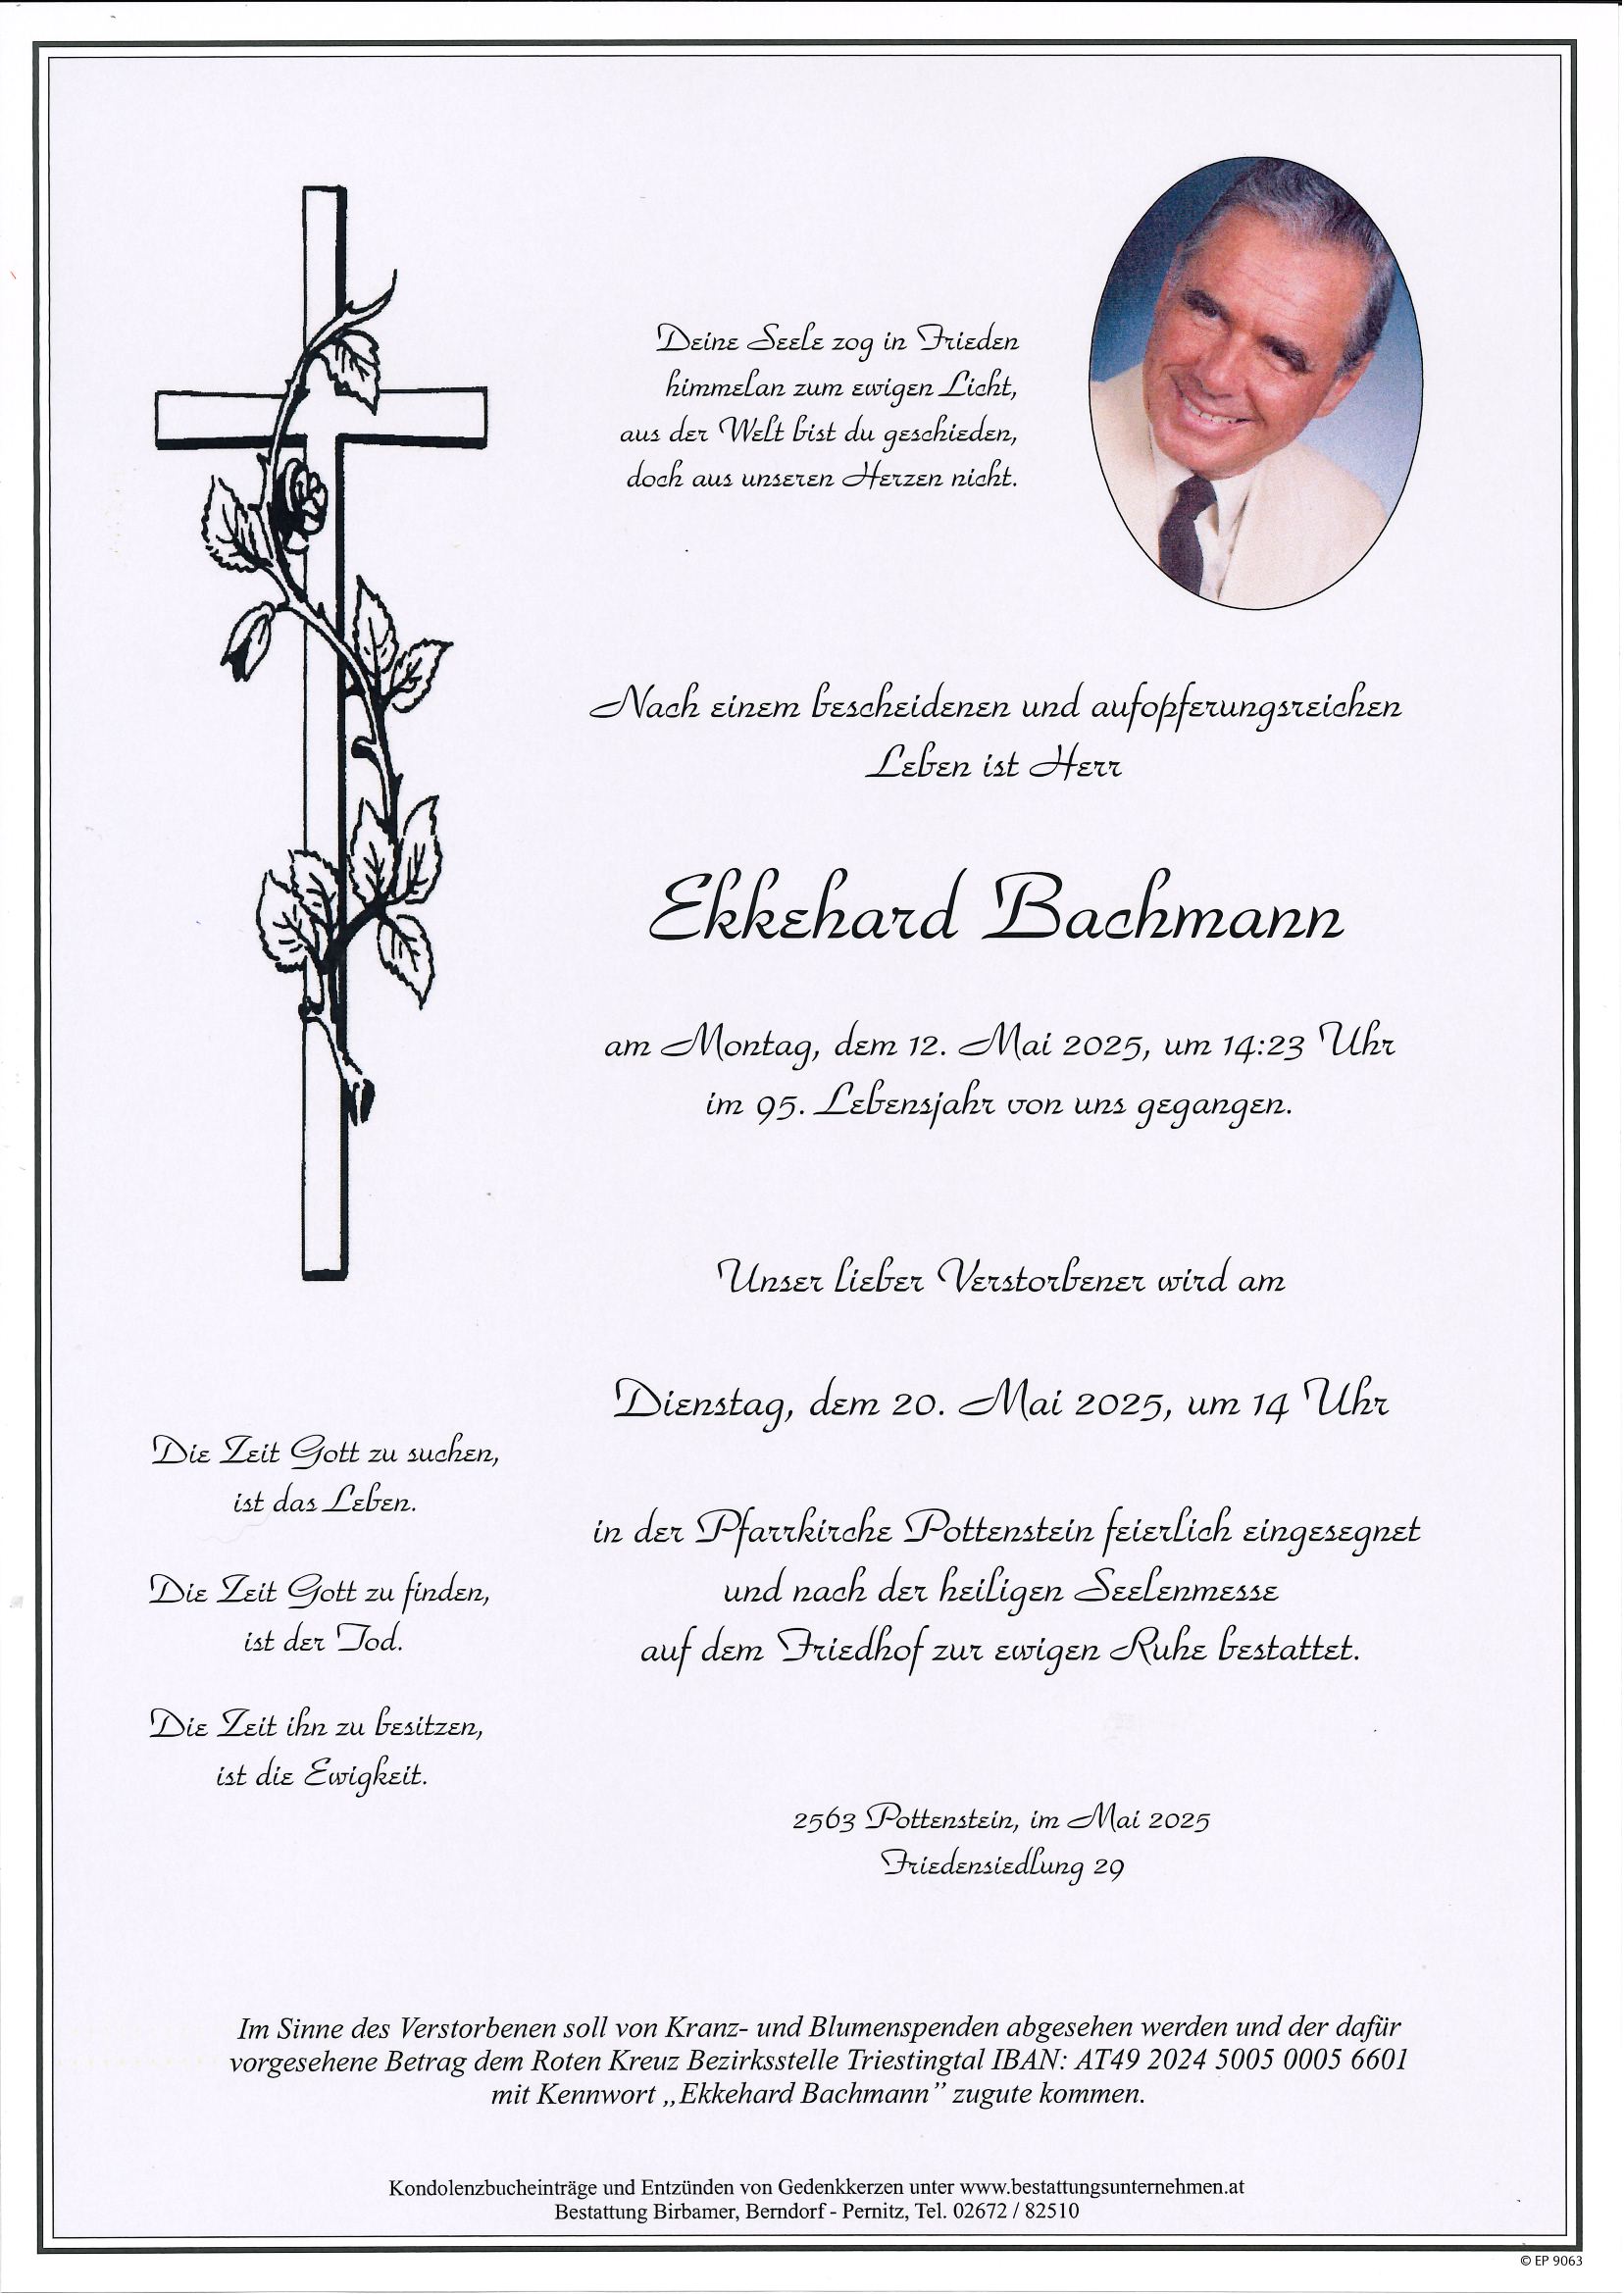 Deine Seele zog in Frieden
himmelan zum ewigen Licht,
aus der Welt bist du geschieden,
doch aus unseren Herzen nicht.
Nach einem bescheidenen und aufopferungsreichen
Leben ist Herr
Ekkehard Bachmann
am Montag, dem 12. Mai 2025, um 14:23 Uhr
im 95. Lebensjahr von uns gegangen.
Unser lieber Verstorbener wird am
Dienstag, dem 20. Mai 2025, um 14 Uhr
in der Pfarrkirche Pottenstein feierlich eingesegnet
und nach der heiligen Seelenmesse
auf dem Friedhof zur ewigen Ruhe bestattet.
Die Zeit Gott zu suchen,
ist das Leben.
Die Zeit Gott zu finden,
ist der Tod.
Die Zeit ihn zu besitzen,
ist die Ewigkeit.
2563 Pottenstein, im Mai 2025
Friedensiedlung 29
Im Sinne des Verstorbenen soll von Kranz- und Blumenspenden abgesehen werden und der dafür
vorgesehene Betrag dem Roten Kreuz Bezirksstelle Triestingtal IBAN: AT49 2024 5005 0005 6601
mit Kennwort „Ekkehard Bachmann” zugute kommen.
Kondolenzbucheinträge und Entzünden von Gedenkkerzen unter www.bestattungsunternehmen.at
Bestattung Birbamer, Berndorf - Pernitz, Tel. 02672 / 82510
© EP 9063